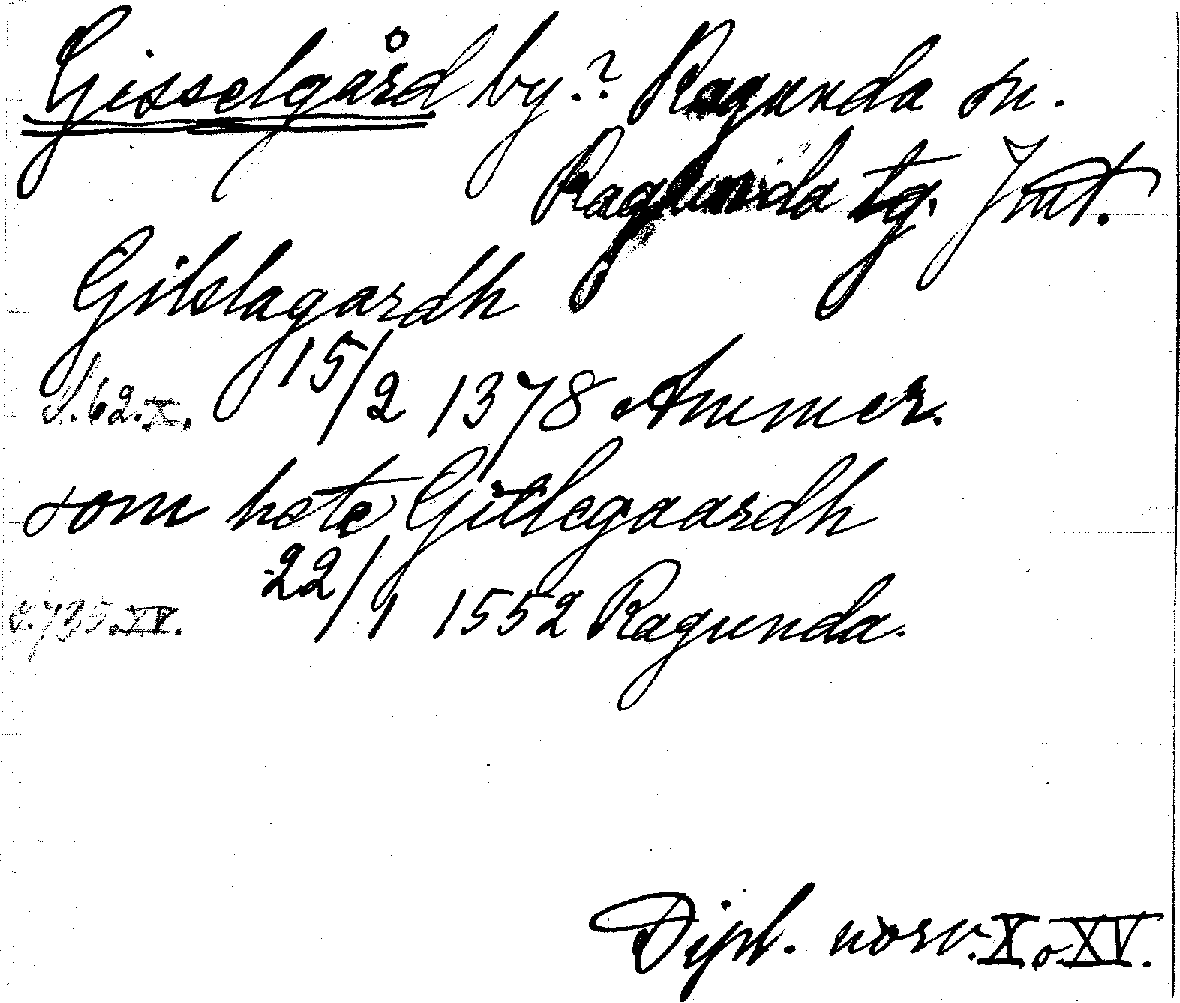 Gisselgård by? Ragunda sn.
Ragunda tg. Jmt.
Gilslagardh
15/2 1378 Ammer.
s. 62. X.
som hete Gillegaardh
22/1 1552 Ragunda.
s. 735. XV.
Dipl. norv. X o XV.